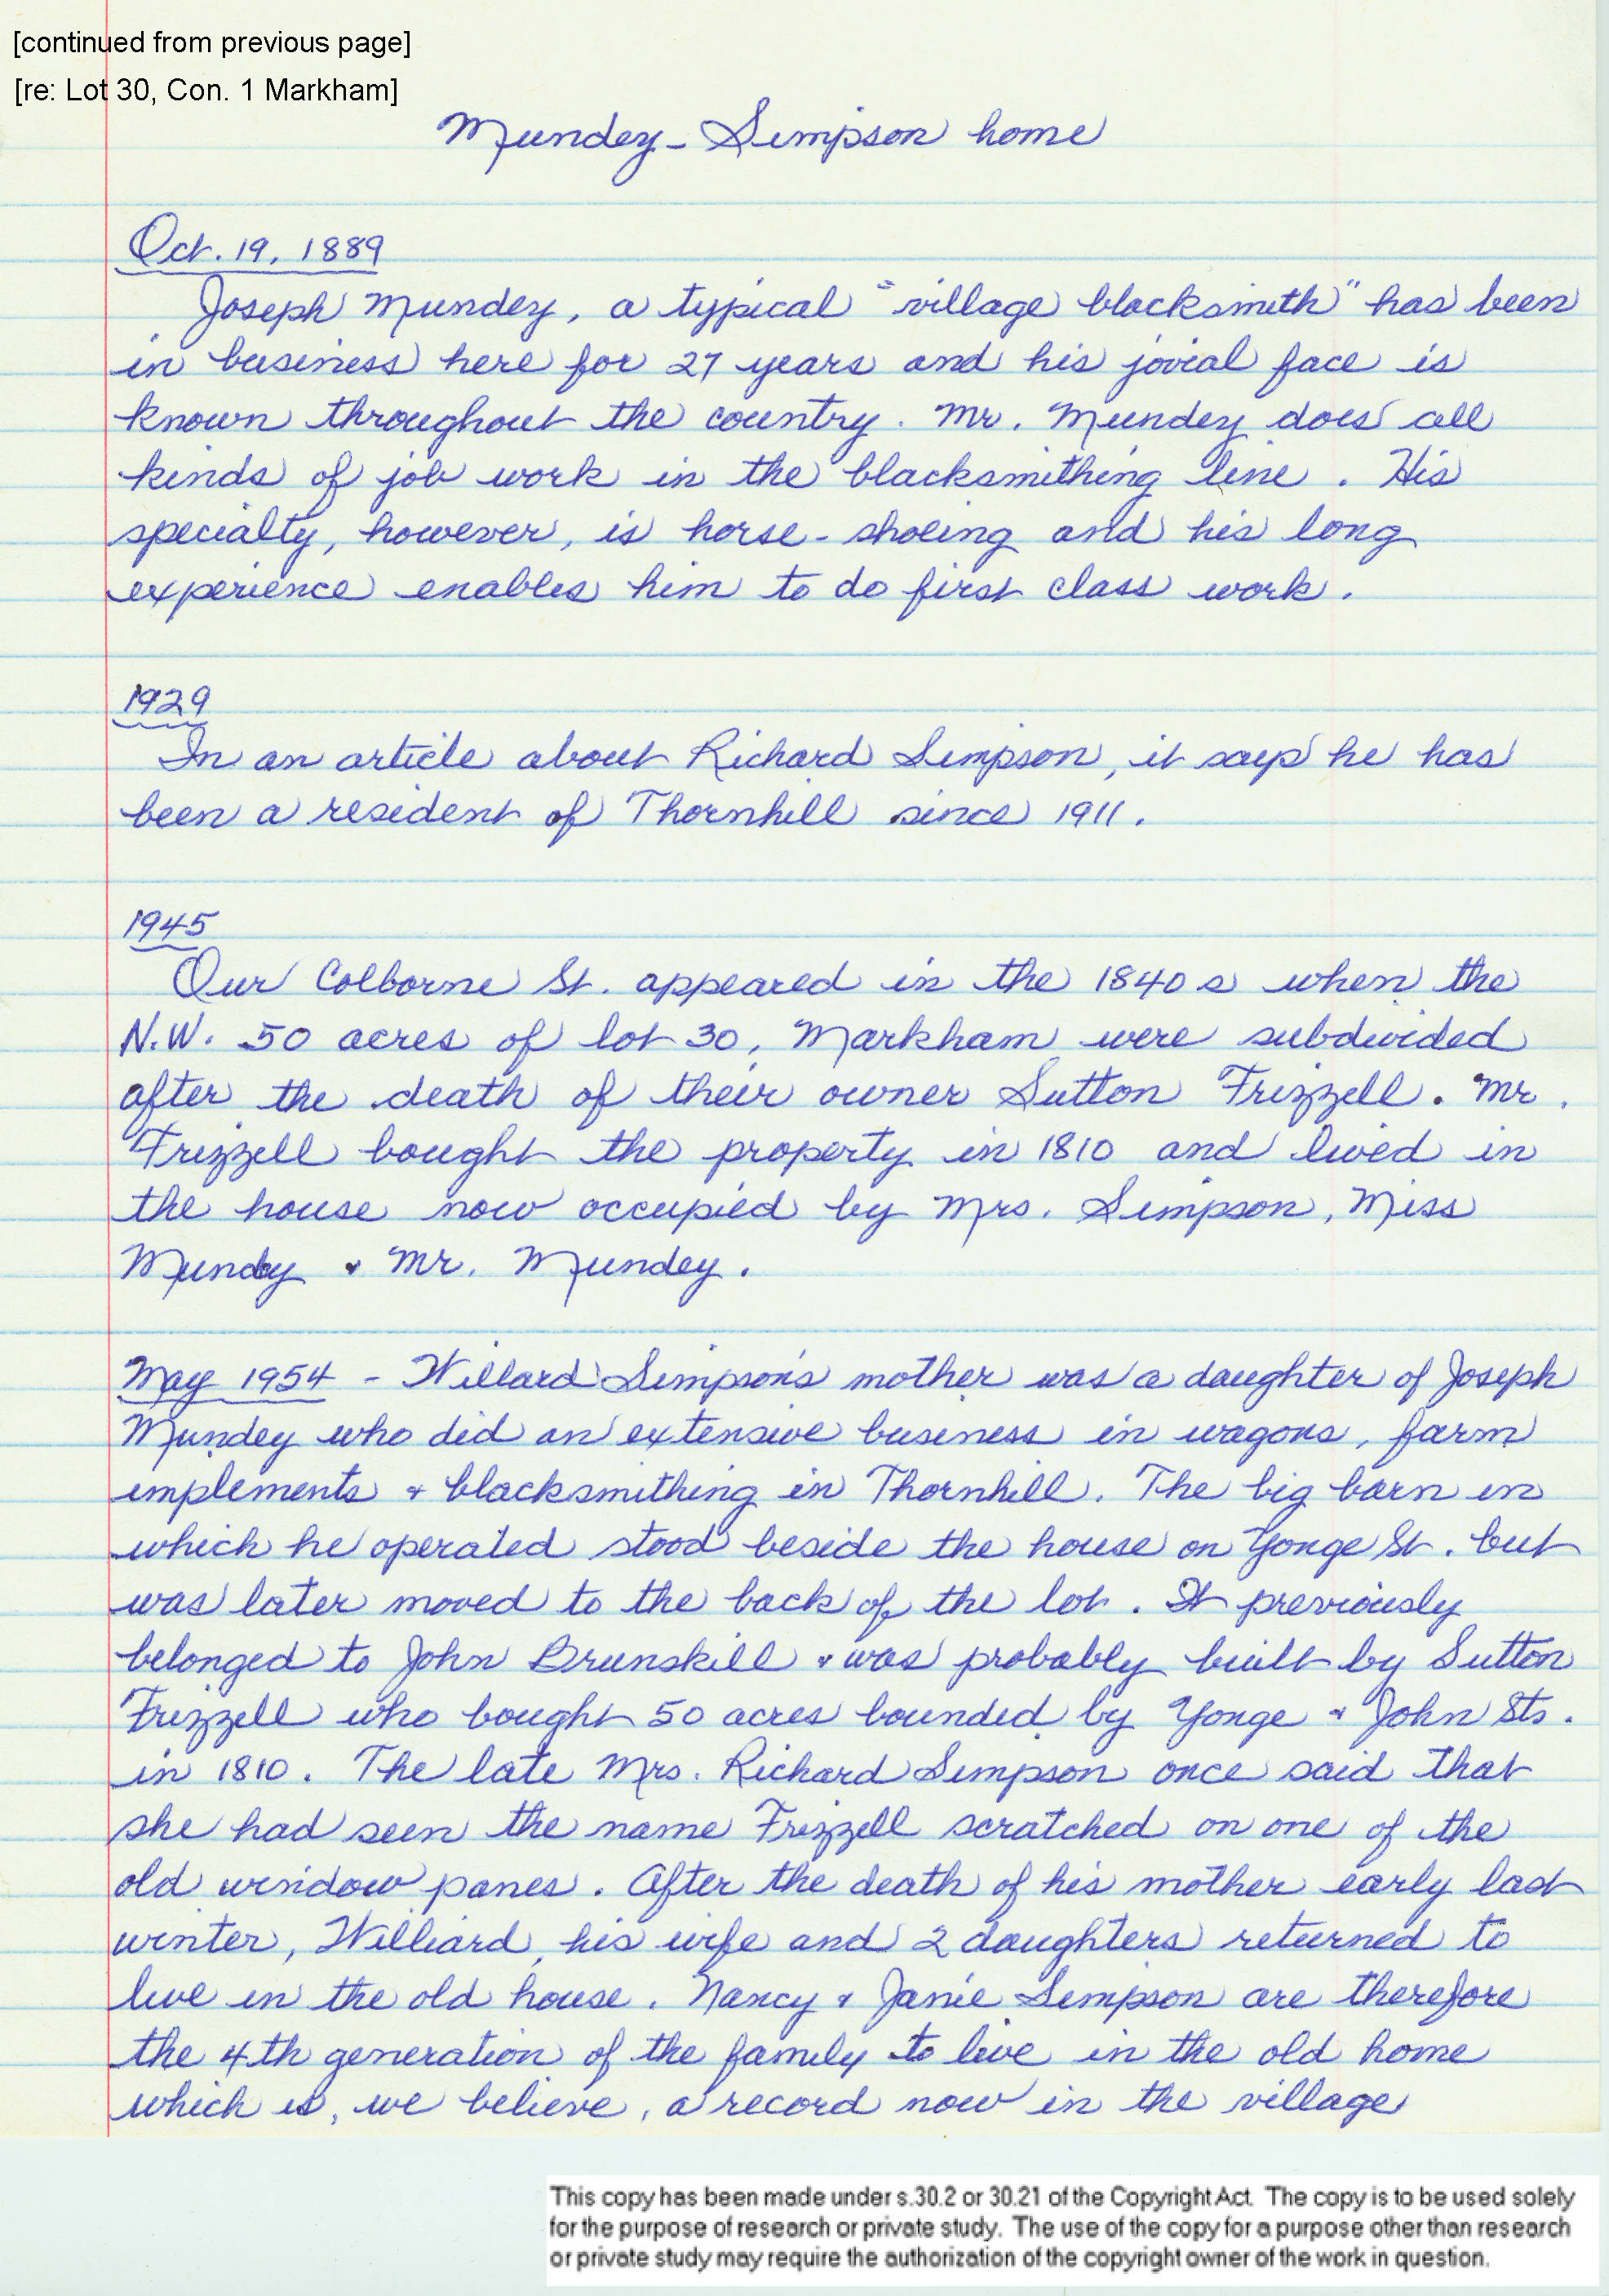 [continued from previous page]
[re: Lot 30, Con. 1 Markham]
Mundey - Simpson home
Oct. 19, 1889
Joseph Mundey, a typical "village blacksmith" has been
in business here for 27 years and his jovial face is
known throughout the country. Mr. Mundey does all
kinds of job work in the blacksmithing line. His
specialty, however, is horse-shoeing and his long
experience enables him to do first class work.
1929
In an article about Richard Simpson, it says he has
been a resident of Thornhill since 1911.
1945
Our Colborne St. appeared in the 1840s when the
N.W. 50 acres of lot 30, Markham were subdivided
after the death of their owner Sutton Frizzell. Mr.
Frizzell bought the property in 1810 and lived in
the house now occupied by Mrs. Simpson, Miss
Mundey & Mr. Mundey.
May 1954 - Willard Simpson's mother was a daughter of Joseph
Mundey who did an extensive business in wagons, farm
implements & blacksmithing in Thornhill. The big barn in
which he operated stood beside the house on Yonge St. but
was later moved to the back of the lot. It previously
belonged to John Brunskill & was probably built by Sutton
Frizzell who bought 50 acres bounded by Yonge & John Sts.
in 1810. The late Mrs. Richard Simpson once said that
she had seen the name Frizzell scratched on one of the
old window panes. After the death of his mother early last
winter, Williard, his wife and 2 daughters returned to
live in the old house. Nancy & Janie Simpson are therefore
the 4th generation of the family to live in the old home
which is, we believe, a record now in the village
This copy has been made under s.30.2 or 30.21 of the Copyright Act. The copy is to be used solely
for the purpose of research or private study. The use of the copy for a purpose other than research
or private study may require the authorization of the copyright owner of the work in question.